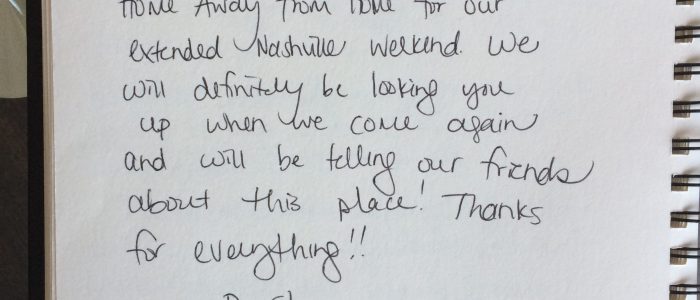 Home Away from Home for our
extended Nashville weekend. We
will definitely be looking you
up when we come again
and will be telling our friends
about this place! Thanks
for everything!!